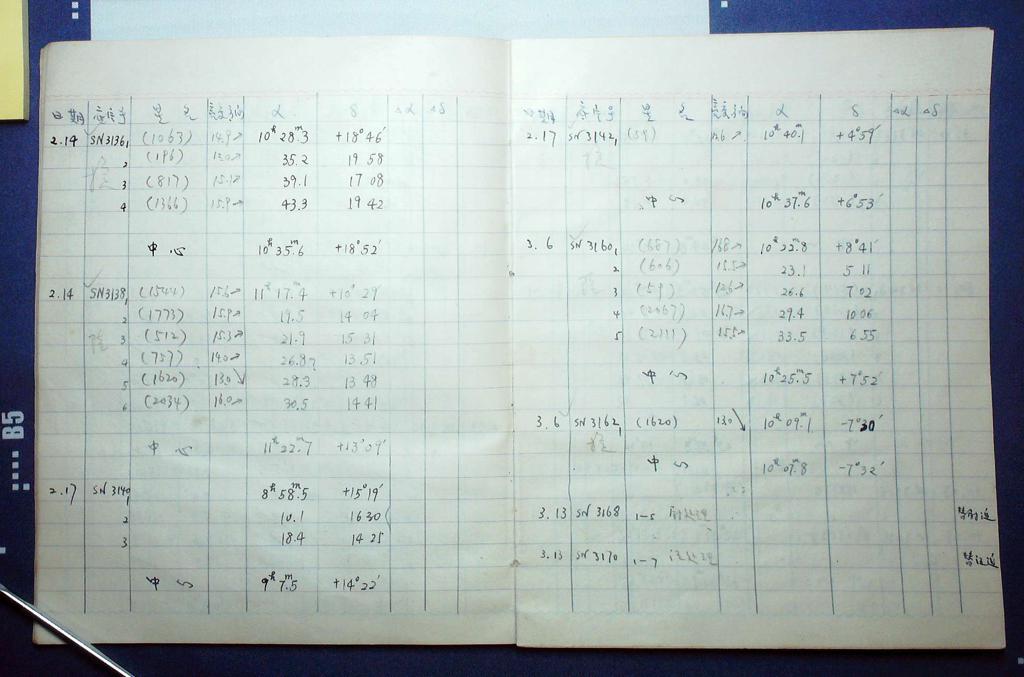 日期 序号 星名 α δ Δα Δδ
2.14 SN3136 1 (1063) 14.9↗ 10ʰ28ᵐ.3 +18°46′
2 (196) 13.0↗ 35.2 19 58
3 (817) 15.1↗ 39.1 17 08
4 (1366) 15.9↗ 43.3 19 42
中心 10ʰ35ᵐ.6 +18°52′
2.14 SN3138 1 (1544) 15.6↗ 11ʰ17ᵐ.4 +10°29′
2 (1773) 15.9↗ 19.5 14 04
3 (512) 15.3↗ 21.9 15 31
4 (757) 14.0↗ 26.8? 13 51
5 (1620) 13.0↘ 28.3 13 48
6 (2034) 16.0↗ 30.5 14 41
中心 11ʰ22ᵐ.7 +13°09′
2.17 SN3140 1 8ʰ58ᵐ.5 +15°19′
2 10.1 16 30
3 18.4 14 25
中心 9ʰ7ᵐ.5 +14°22′
日期 星名 α δ Δα Δδ
2.17 SN3142 1 (59) 12.6↗ 10ʰ40ᵐ.1 +4°59′
中心 10ʰ37ᵐ.6 +6°53′
3.6 SN3160 1 (687) 16.8↗ 10ʰ22ᵐ.8 +8°41′
2 (606) 15.5↗ 23.1 5 11
3 (59) 12.6↗ 26.6 7 02
4 (2067) 16.7↗ 29.4 10 06
5 (2111) 15.5↗ 33.5 6 55
中心 10ʰ25ᵐ.5 +7°52′
3.6 SN3162 1 (1620) 13.0↘ 10ʰ09ᵐ.1 -7°30′
中心 10ʰ07ᵐ.8 -7°32′
3.13 SN3168 1-5
3.13 SN3170 1-7
B5